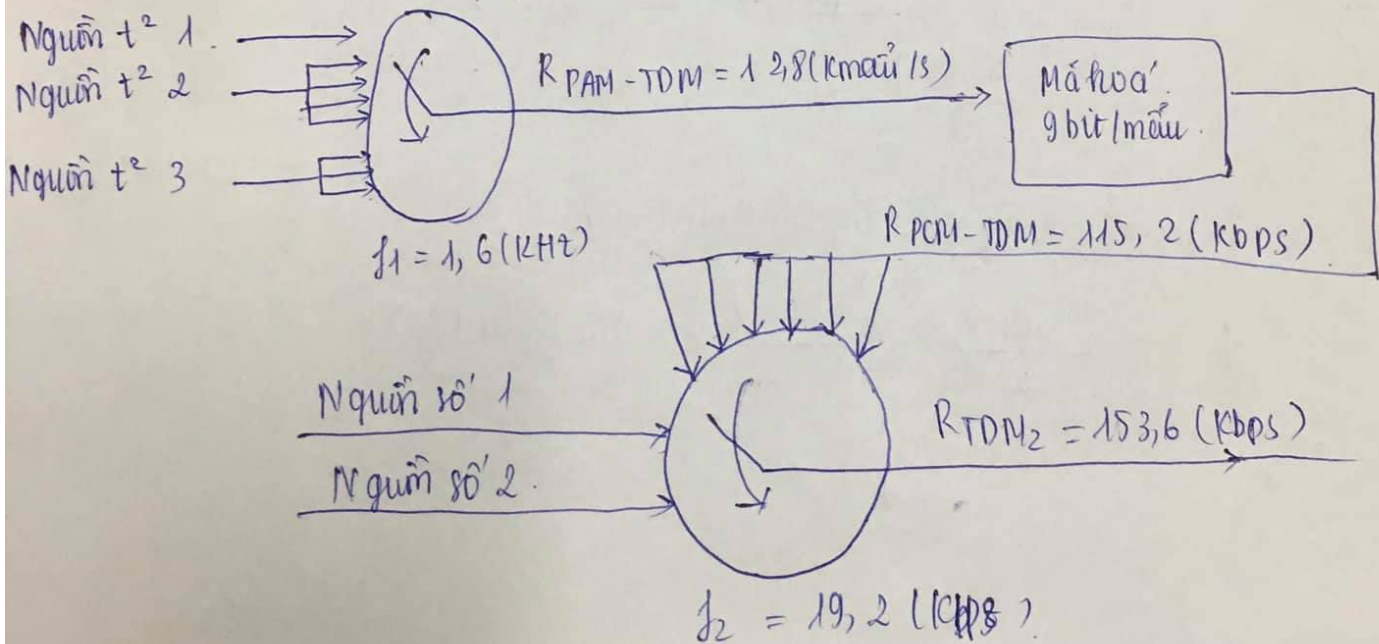 Nguồn t² 1.
Nguồn t² 2
Nguồn t² 3
f1 = 1,6 (KHz)
RPAM-TDM = 12,8 (Kmẫu/s)
Mã hoá.
9 bit/mẫu.
RPCM-TDM = 115,2 (Kbps)
Nguồn số 1
Nguồn số 2.
RTDM2 = 153,6 (Kbps)
f2 = 19,2 (Kbps)